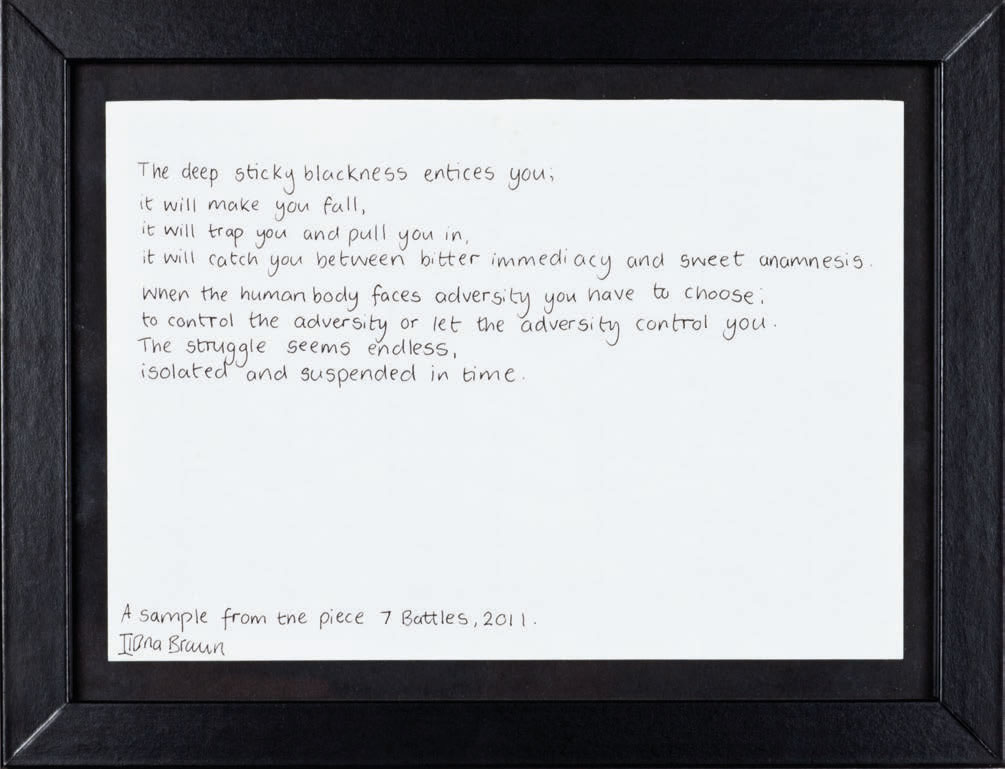 The deep sticky blackness entices you;
it will make you fall,
it will trap you and pull you in,
it will catch you between bitter immediacy and sweet anamnesis.
When the human body faces adversity you have to choose;
to control the adversity or let the adversity control you.
The struggle seems endless,
isolated and suspended in time.
A sample from the piece 7 Battles, 2011.
Ilona Braun